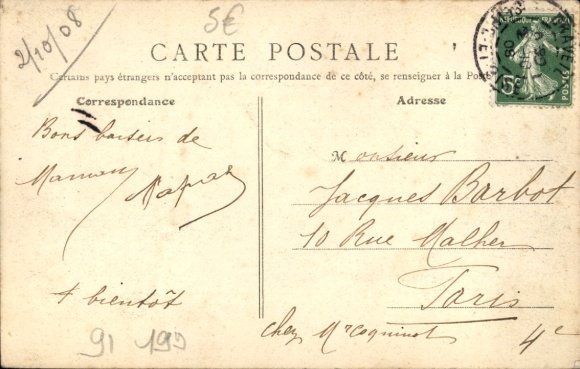 2/10/08
5€
CARTE POSTALE
Certains pays étrangers n'acceptant pas la correspondance de ce côté, se renseigner à la Poste
Correspondance
Adresse
Bons baisers de
Maman
à bientôt
91 199
Monsieur
Jacques Barbot
10 Rue Malher
Paris
chez Mr Coquinot 4e
RÉPUBLIQUE FRANÇAISE
5c
POSTES